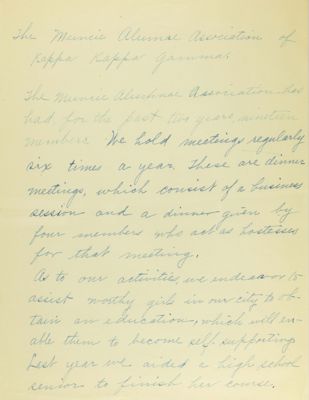 The Muncie Alumnae Association of
Kappa Kappa Gamma.
The Muncie Alumnae Association has
had for the past two years, nineteen
members. We hold meetings regularly
six times a year. These are dinner
meetings, which consist of a business
session and a dinner given by
four members who act as hostesses
for that meeting.
As to our activities, we endeavor to
assist worthy girls in our city to ob-
tain an education, which will en-
able them to become self supporting.
Last year we aided a high school
senior to finish her course.